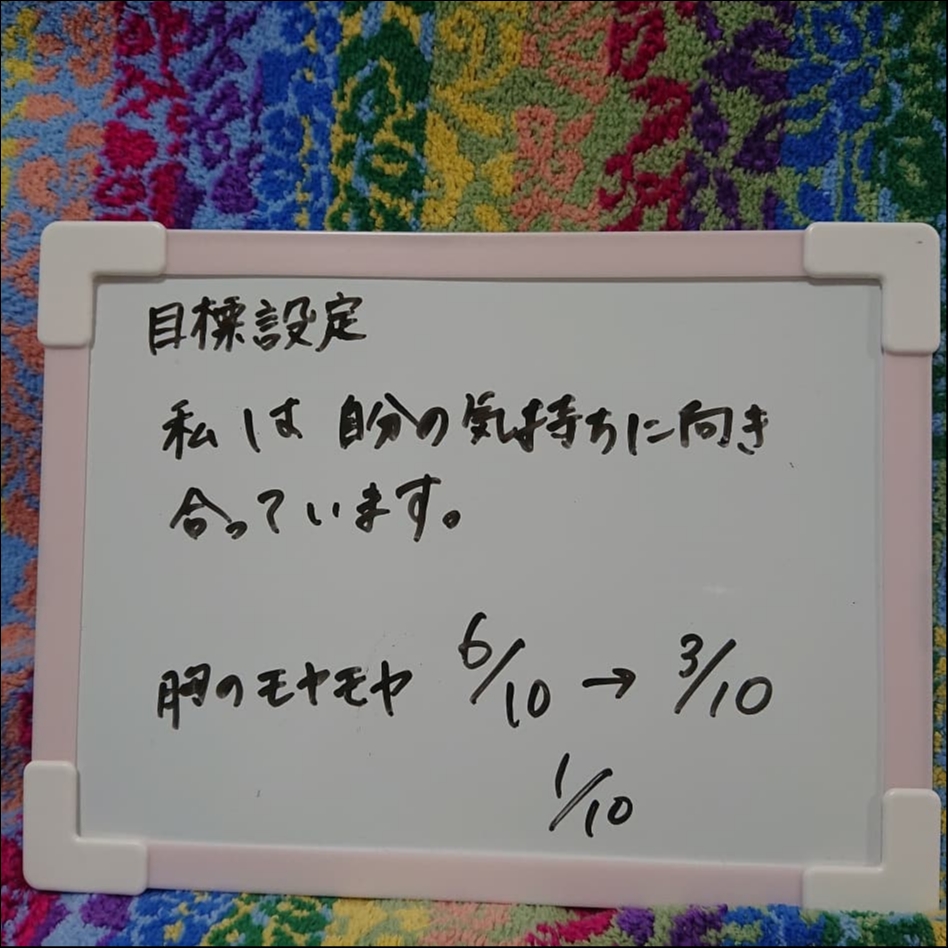 目標設定
私は自分の気持ちに向き
合っています。
胸のモヤモヤ 6/10 → 3/10
1/10